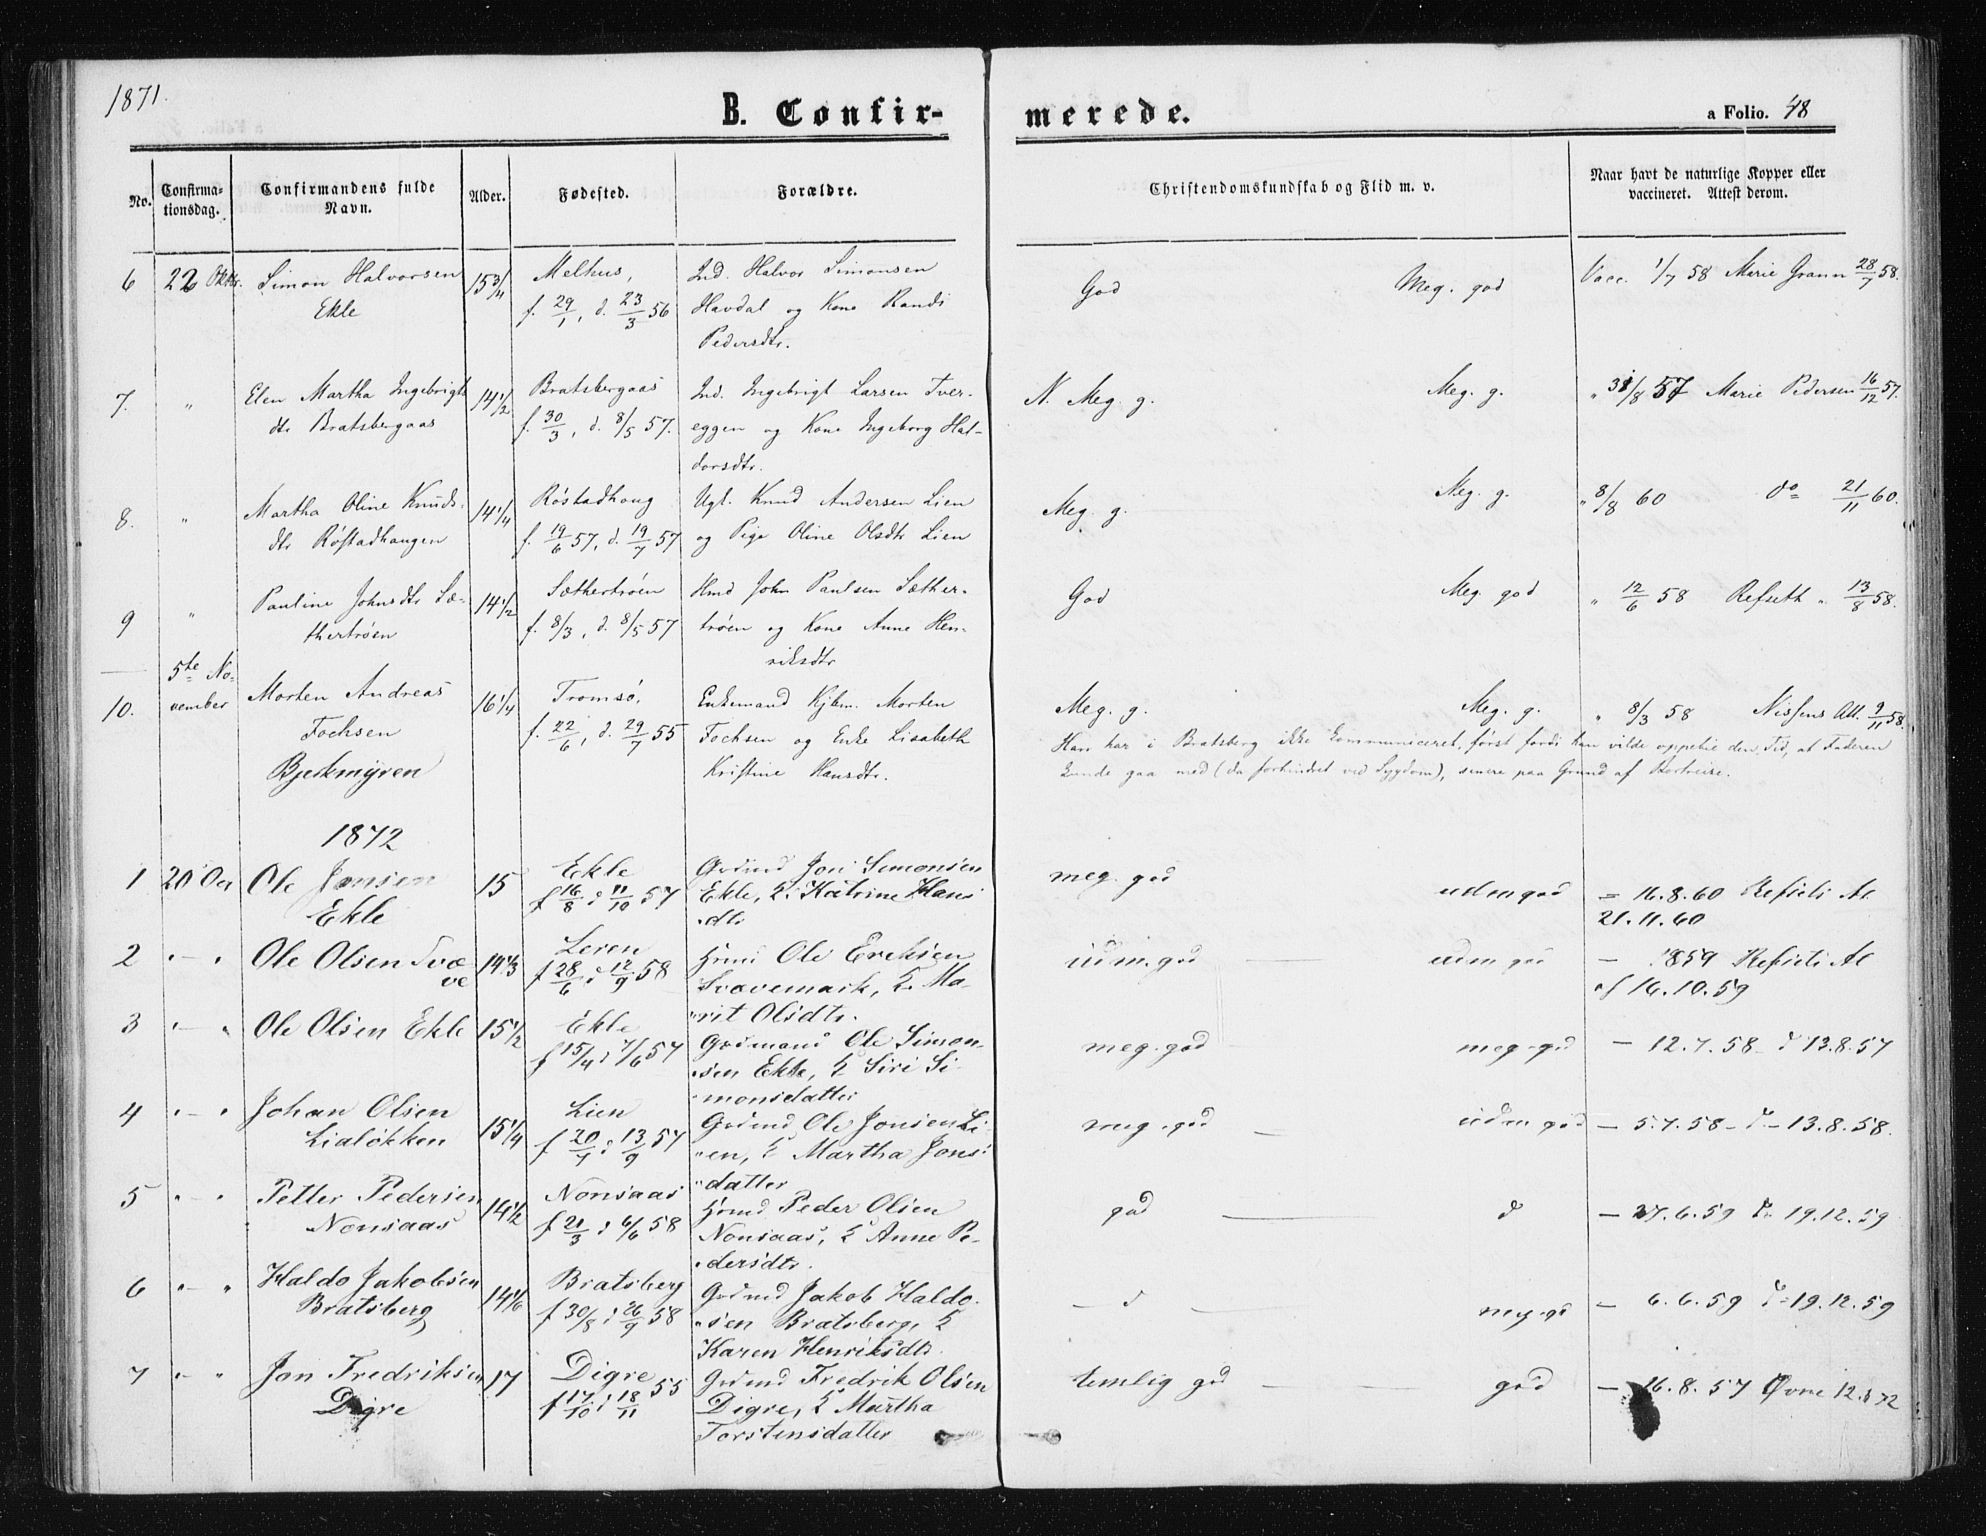 1871.
B. Confir-
merede.
a Folio. 48
No.
Confirma-
tionsdag.
Confirmandens fulde
Navn.
Alder.
Fødested.
Forældre.
Christendomskundskab og Flid m. v.
Naar havt de naturlige Kopper eller
vaccineret. Attest derom.
6 22 Oktbr. Simon Halvorsen 15 3/4 Melhus, Ind. Halvor Simonsen God Meg. god Vacc. 1/7 58 Marie Grann 28/7 58.
Ekle f. 29/1, d. 23/3 56 Havdal og Kone Randi
Pedersdtr.
7. " Elen Martha Ingebrigts 14 1/2 Bratsbergaas Ind. Ingebrigt Larsen Tver- N. Meg. g. Meg. g. " 31/8 57 Marie Pedersen 16/12 57.
dtr Bratsbergaas f. 30/3, d. 8/5 57. eggen og Kone Ingeborg Hal-
dorsdtr.
8. " Martha Oline Knuds- 14 1/4 Röstadhaug Ugt. Knud Andersen Lien Meg. g. Meg. g. " 8/8 60 do 21/11 60.
dtr Röstadhaugen f. 19/6 57, d. 19/7 57 og Pige Oline Olsdtr Lien
9 " Pauline Johnsdtr Sæ- 14 1/2 Sæthertröen Hmd John Paulsen Sæther- God Meg. god " 12/6 58 Refseth " 13/8 58.
thertröen f. 8/3, d. 8/5 57 tröen og Kone Anne Hen-
riksdtr
5te No-
10. vember Morten Andreas 16 1/4 Tromsö, Enkemand Kjbm. Morten Meg. g. Meg. g. " 8/3 58 Nissens Att. 9/11 58.
Fochsen f. 22/6, d. 29/7 55 Fochsen og Enke Lisabeth Han har i Bratsberg ikke kommuniceret, først fordi han vilde oppebie den Tid, at Faderen
Bjerkmyren Kristine Hansdtr. kunde gaa med (da forhindret ved Sygdom), senere paa Grund af Bortreise.
1872
1 20 Oct Ole Jonsen 15 Ekle Grdmd Jon Simonsen meg. god udm god = 16.8.60 Refsets At.
Ekle f 16/8 d 11/10 57 Ekle, K. Katrine Hans 21.11.60
dtr
2 " - " Ole Olsen Svæ 14 1/3 Leren Hmd Ole Eriksen udm. god udm god - 1859 Refsets At
ve f 28/6 d 12/9 58 Svævemark, K. Ma- af 16.10.59
rit Olsdtr.
3 " - " Ole Olsen Ekle 15 1/2 Ekle Grdmand Ole Simon- meg. god meg. god - 12.7.58 - d 13.8.57
f 15/4 d 7/6 57 sen Ekle, K Siri Si-
monsdatter
4 " - " Johan Olsen 15 1/4 Lien Grdmd Ole Jonsen Li- meg. god udm god - 5.7.58 - d - 13.8.58.
Lialökken f 20/7 d 13/9 57 en, K Martha Jons-
datter
5 " - " Petter Pedersen 14 1/2 Nonsaas Hmd Peder Olsen god d - 27.6.59 d 19.12.59
Nonsaas f 21/3 d 6/6 58 Nonsaas, K Anne Pe-
dersdtr.
6 " - " Haldo Jakobsen 14 1/6 Bratsberg Grdmd Jakob Haldo- - d - meg. gd - 6.6.59 d 19.12.59
Bratsberg f 30/8 d 26/9 58 sen Bratsberg, K
Karen Henriksdtr.
7 " - " Jon Fredriksen 17 Digre Grdmd Fredrik Olsen temlig god god - 16.8.57 Øvre 12.8.72
Digre f 17/10 d 18/11 55 Digre, K Martha
Torstensdatter